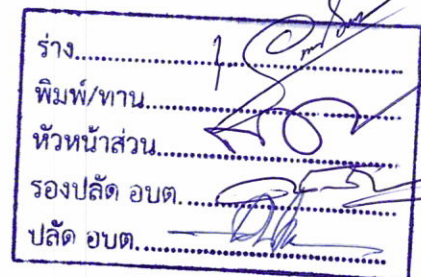 ร่าง
พิมพ์/ทาน
หัวหน้าส่วน
รองปลัด อบต.
ปลัด อบต.